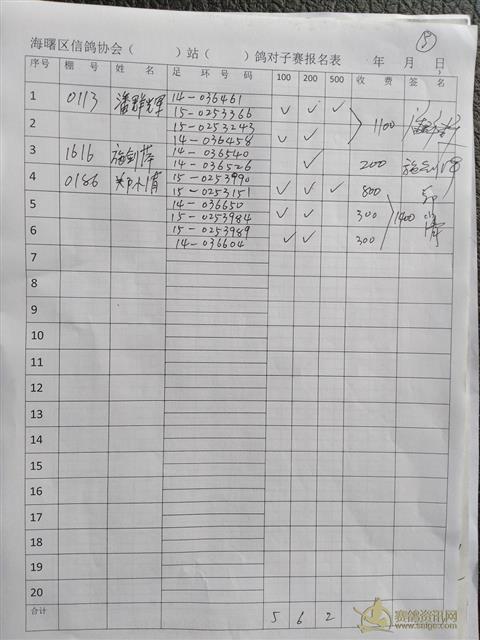 5
海曙区信鸽协会（ ）站（ ）鸽对子赛报名表 年 月 日
序号 棚 号 姓 名 足 环 号 码 100 200 500 收 费 签 名
1 0113 14-036461 ✓ ✓ ✓ 1100
15-0253366
2 15-0253243 ✓ ✓
14-036458
3 1616 14-036540 ✓ 200
14-036526
4 0186 15-0253990 ✓ ✓ ✓ 800
15-0253151
5 14-036650 ✓ ✓ 300 1400
15-0253984
6 15-0253989 ✓ ✓ 300
14-036604
7
8
9
10
11
12
13
14
15
16
17
18
19
20
合计 5 6 2
赛鸽资讯网
www.saige.com